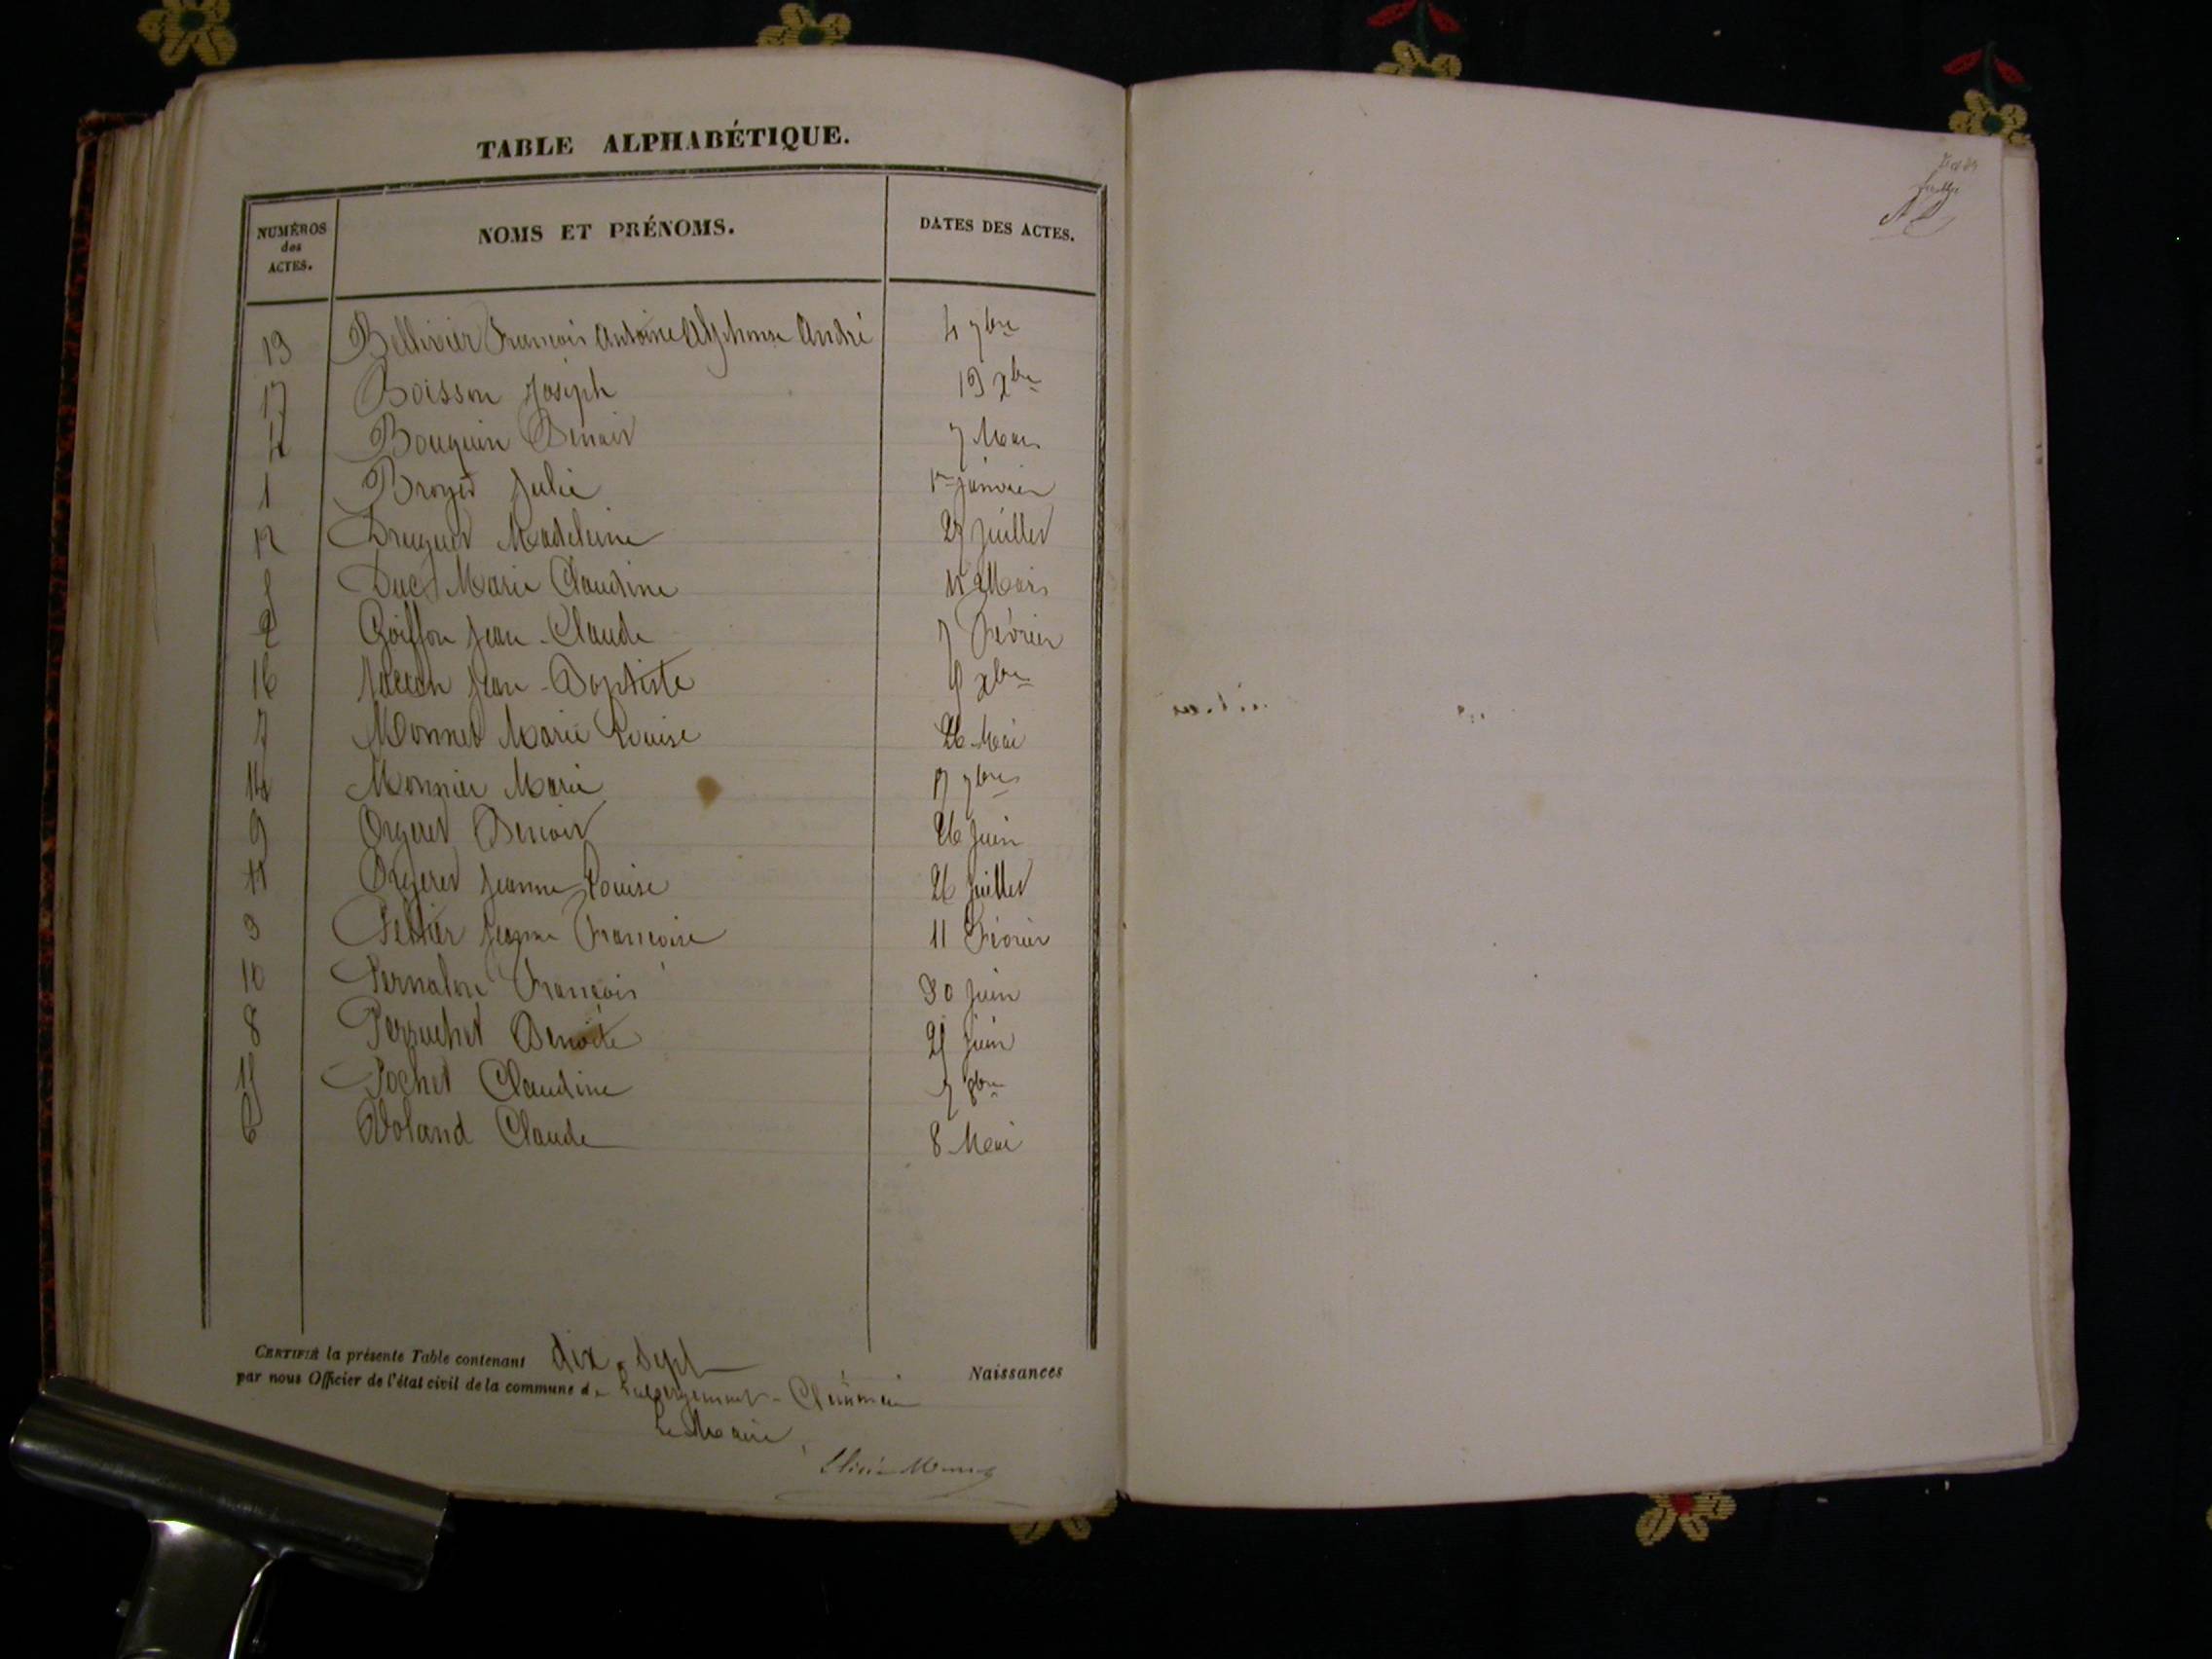 TABLE ALPHABÉTIQUE.
NUMÉROS des ACTES. NOMS ET PRÉNOMS. DATES DES ACTES.
13 Bellivier François Antoine Alphonse André 4 7bre
17 Boisson Joseph 19 xbre
4 Bouquin Benoit 7 Mars
1 Broyet Julie 1er Janvier
12 Dreuguet Madeleine 27 Juillet
5 Duc Marie Claudine Mars
2 Goiffon Jean-Claude 7 Février
16 Jean-Baptiste 9 xbre
7 Monnet Marie Louise 26 Mai
14 Monnier Marie 17 7bre
9 Orgeret Benoit 26 Juin
11 Orgeret Jeanne Louise 26 Juillet
3 Jeanne Françoise 11 Février
10 Pernalon François 30 Juin
8 Perruchet Benoite 25 Juin
15 Pochet Claudine 7 8bre
6 Voland Claude 8 Mai
CERTIFIÉ la présente Table contenant dix-sept Naissances
par nous Officier de l'état civil de la commune de
Le Maire,